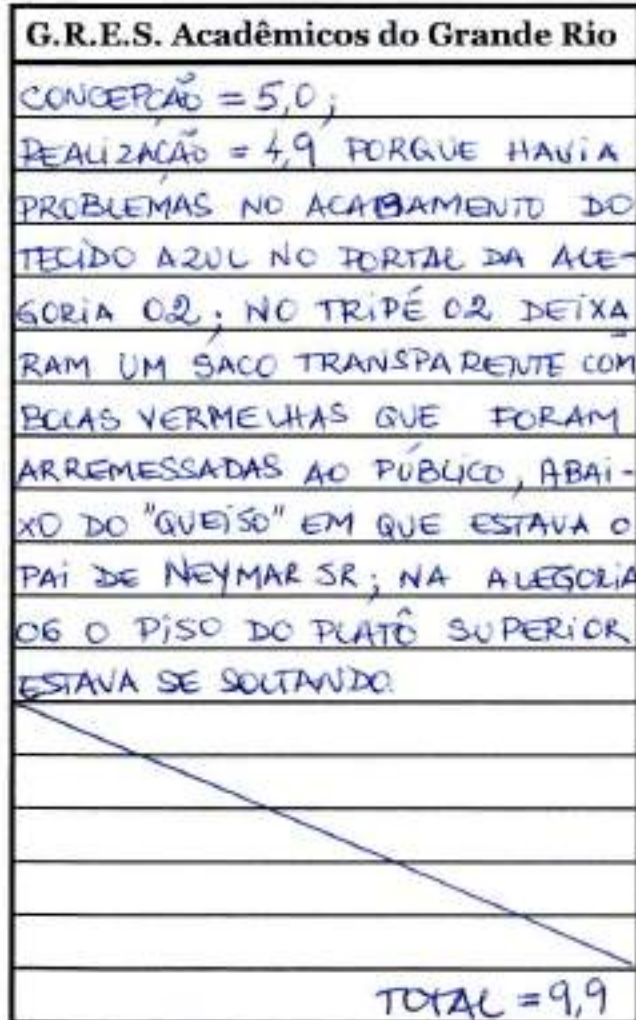 G.R.E.S. Acadêmicos do Grande Rio
CONCEPÇÃO = 5,0;
REALIZAÇÃO = 4,9 PORQUE HAVIA
PROBLEMAS NO ACABAMENTO DO
TECIDO AZUL NO PORTAL DA ALE-
GORIA 02; NO TRIPÉ 02 DEIXA-
RAM UM SACO TRANSPARENTE COM
BOLAS VERMELHAS QUE FORAM
ARREMESSADAS AO PÚBLICO, ABAI-
XO DO "QUEISO" EM QUE ESTAVA O
PAI DE NEYMAR SR; NA ALEGORIA
06 O PISO DO PLATÔ SUPERIOR
ESTAVA SE SOLTANDO.
TOTAL = 9,9